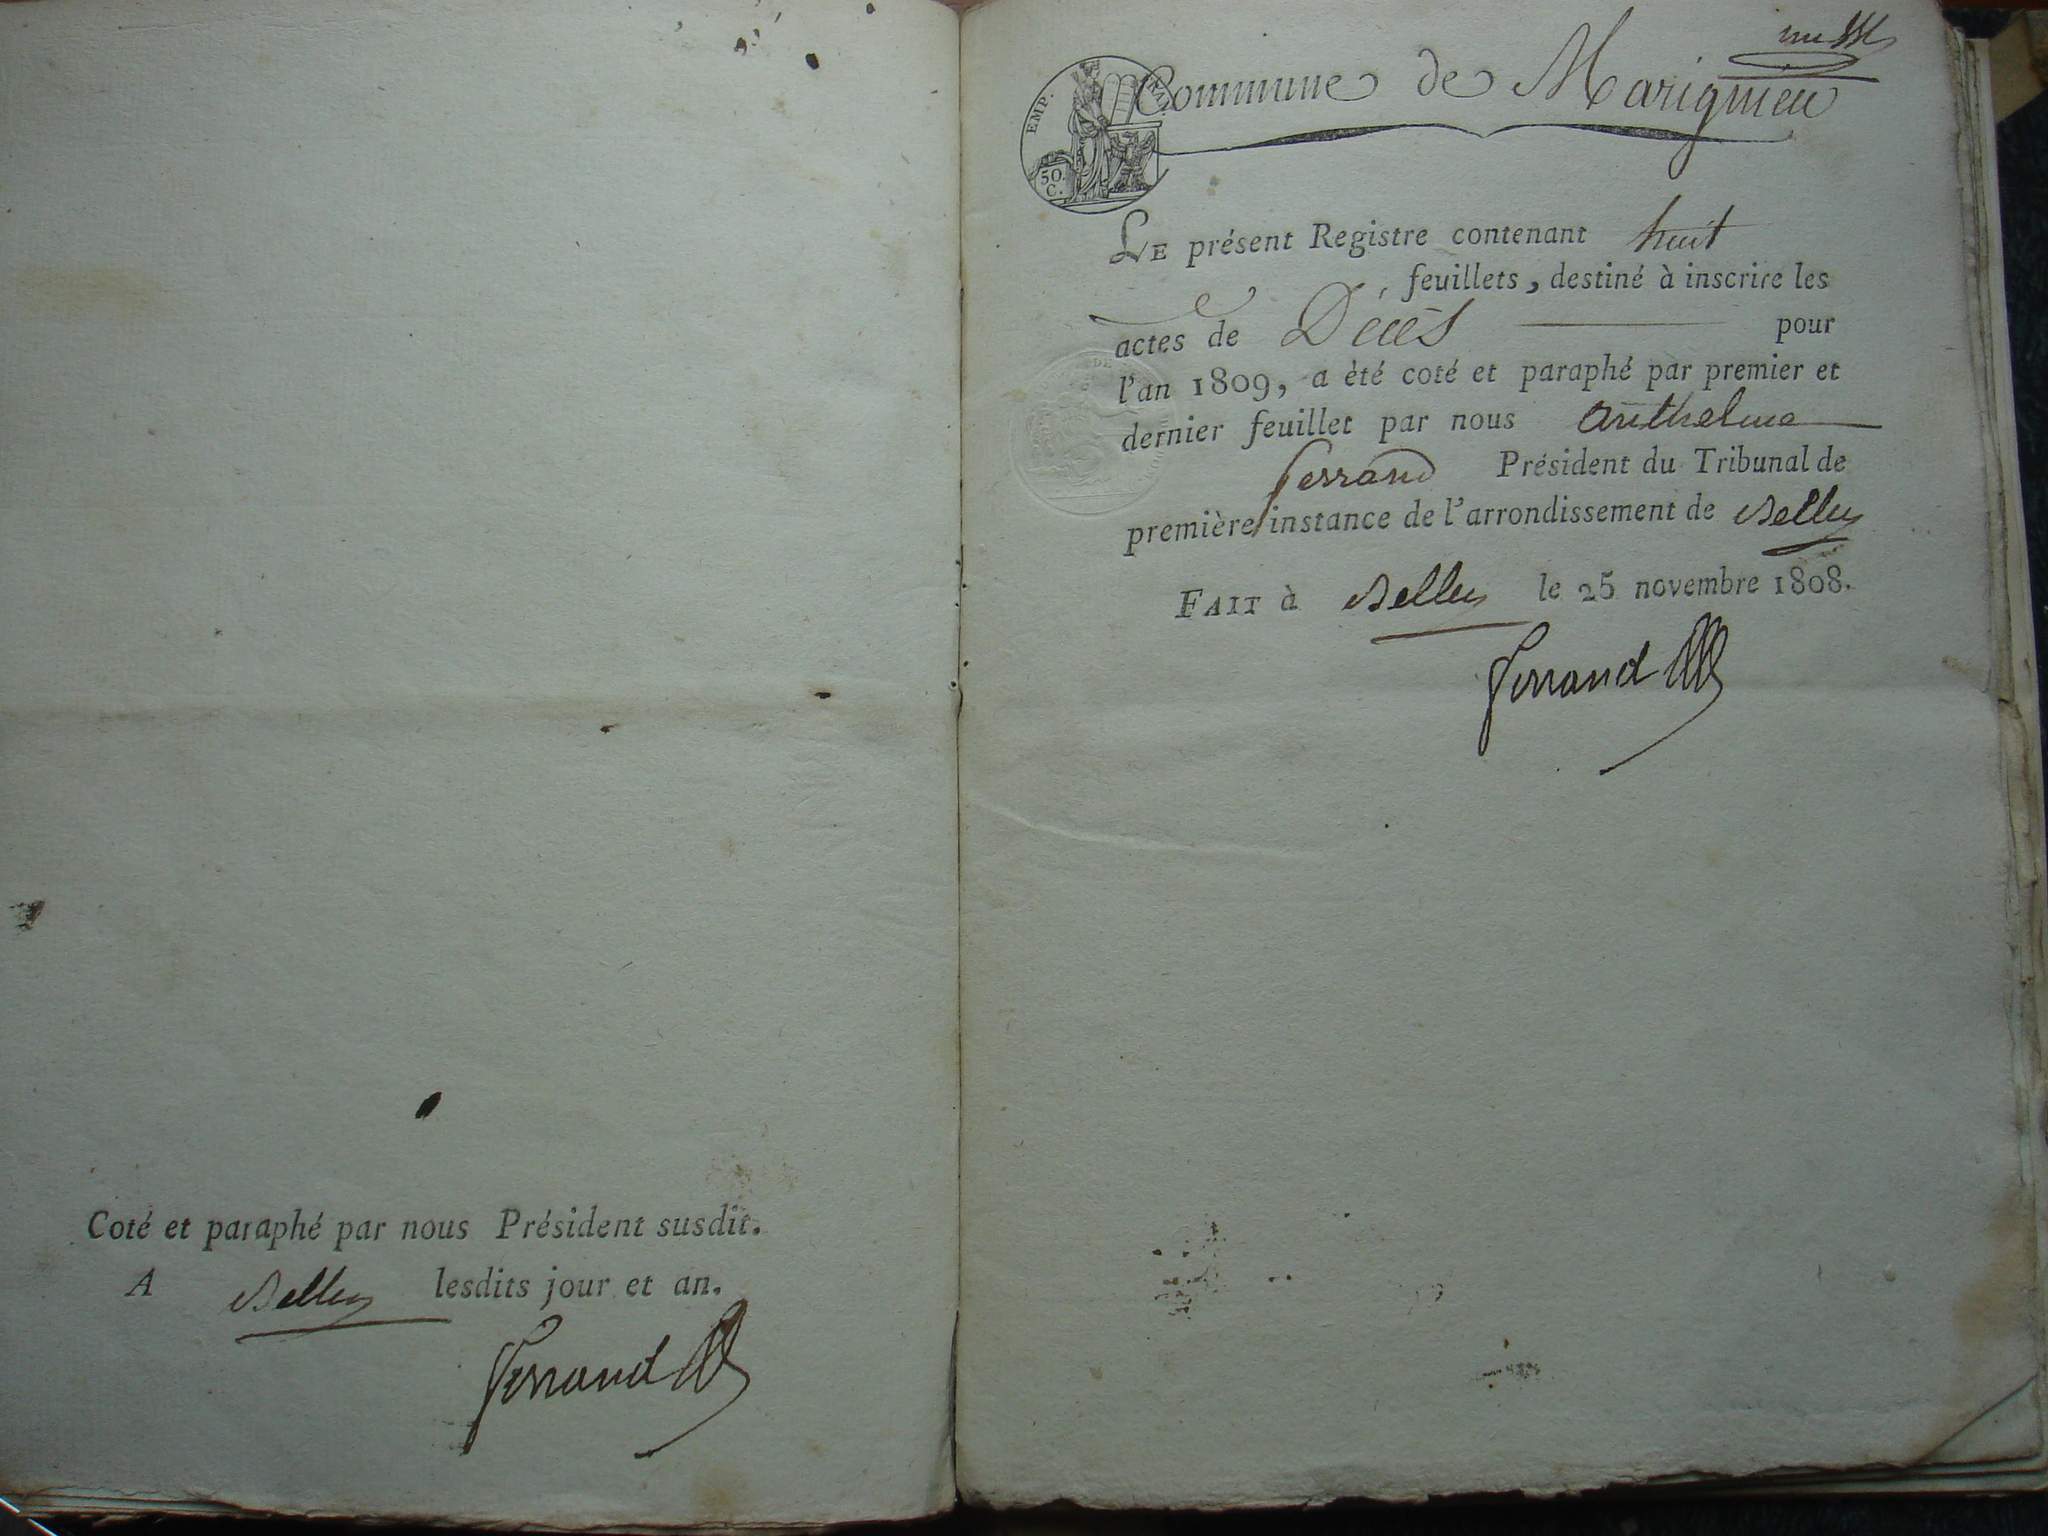 Coté et paraphé par nous Président susdit.
A Belley lesdits jour et an.
Ferrand
EMP. FRAN
50.
C.
Commune de Marignieu
LE présent Registre contenant huit
feuillets, destiné à inscrire les
actes de Décès pour
l'an 1809, a èté coté et paraphé par premier et
dernier feuillet par nous Anthelme
Ferrand Président du Tribunal de
première instance de l'arrondissement de Belley
FAIT à Belley le 25 novembre 1808.
Ferrand